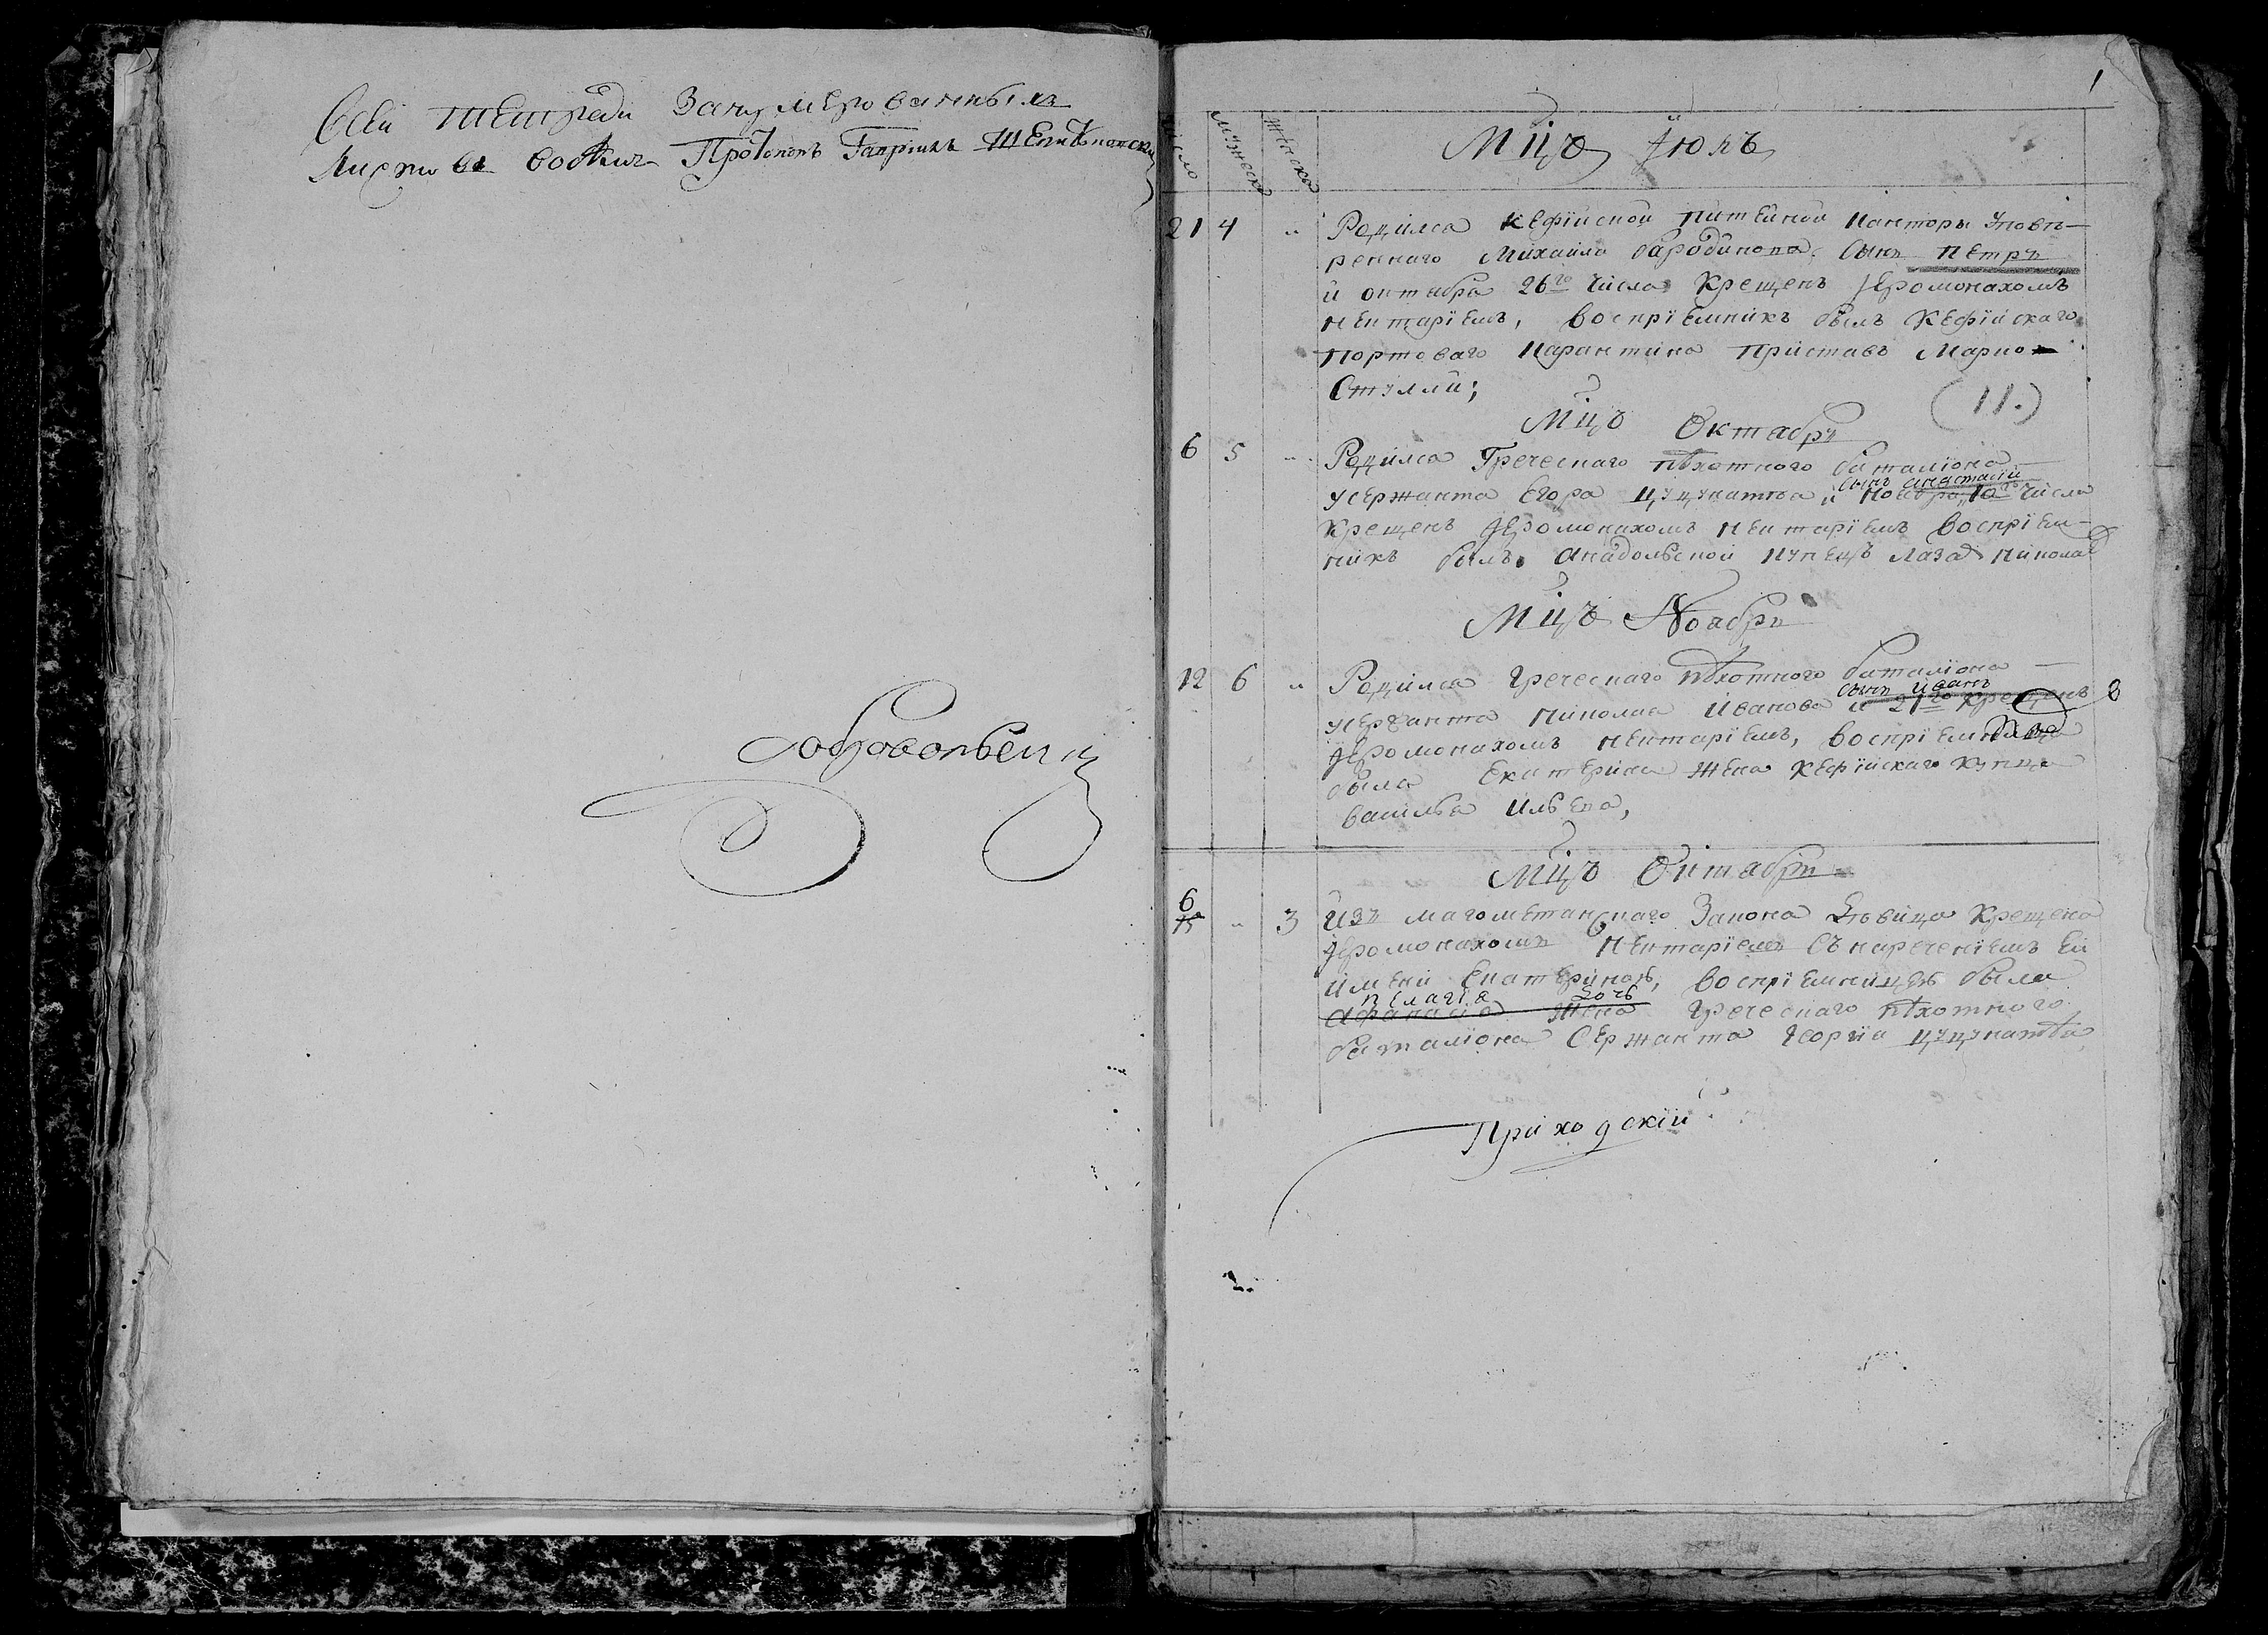 Въ сей тетради Занумерованныхъ
Листовъ восемь Протопопъ Гавріилъ
1
число мужеска женска
Мцъ Іюль
21 4 " Родился Кефійской питейной канторы Уповѣ-
реннаго Михаила Бородинова, Сынъ Петръ
и октября 26го числа Крещенъ Іеромонахомъ
Нектаріемъ, воспріемникъ былъ Кефійскаго
портоваго Карантина приставъ Марио
Стулли;
(11.)
Мцъ Октябрь
6 5 " Родился Греческаго пѣхотнаго баталіона
сынъ анастасій
усержанта Егора Цуцукаттѣа и ноября 10го числа
Крещенъ Іеромонахомъ Нектаріемъ воспріем-
никъ былъ Анадольской купецъ Лаза Никола
Мцъ Ноябрь
12 6 " Родился греческаго пѣхотного баталіона
сынъ иванъ
усержанта Николая Иванова и 21го крещенъ
Іеромонахомъ Нектаріемъ, воспріемница
была Екатерина Жена Кефійскаго купца
Василья Ильена,
Мцъ Октябрь
6
15 " 3 Изъ магометанскаго Закона Дѣвица Крещена
Іеромонахомъ Нектаріемъ съ нареченіемъ ей
имени Екатериною, воспріемницею была
пелагія дочь
Афанасія Жена греческаго пѣхотного
баталіона Сержанта Георгія Цуцукаттѣа,
Приходскій